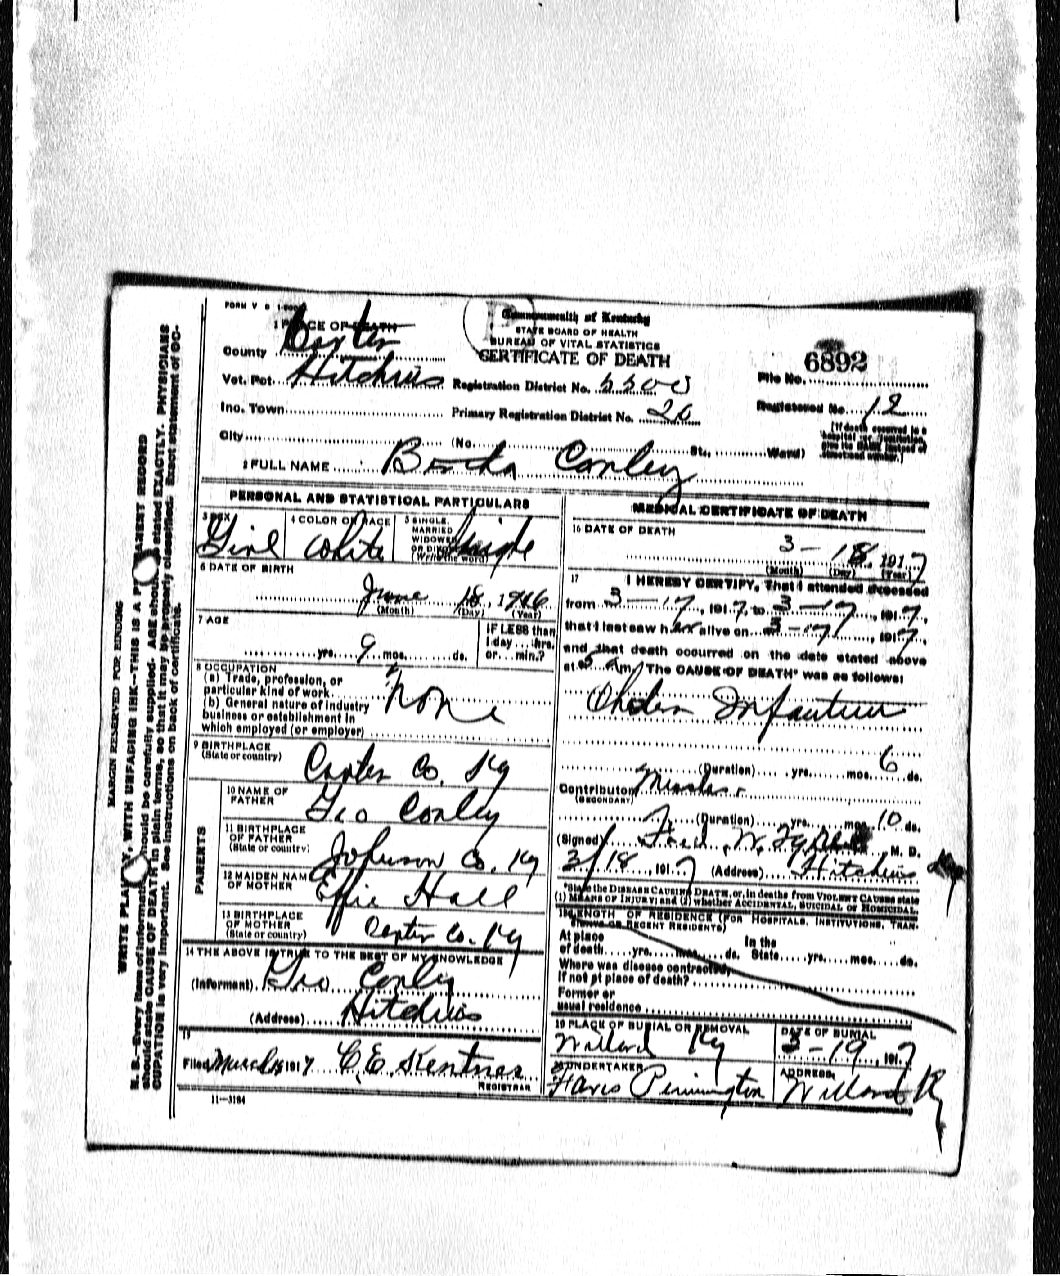 FORM V S 1
Commonwealth of Kentucky
STATE BOARD OF HEALTH
BUREAU OF VITAL STATISTICS
CERTIFICATE OF DEATH
1 PLACE OF DEATH
County Carter
Vot. Pct. Hitchins Registration District No. 5500
Ino. Town Primary Registration District No. 20
City (No. St., Ward)
File No. 6892
Registered No. 12
[If death occurred in a hospital or institution, give the NAME instead of street and number.]
2 FULL NAME Bertha Conley
PERSONAL AND STATISTICAL PARTICULARS
3 SEX Girl
4 COLOR OR RACE White
5 SINGLE, MARRIED, WIDOWED OR DIVORCED (Write the word) Single
6 DATE OF BIRTH
June 18, 1916
(Month) (Day) (Year)
7 AGE
yrs. 9 mos. ds.
IF LESS than 1 day hrs. or min.?
8 OCCUPATION
(a) Trade, profession, or
particular kind of work None
(b) General nature of industry
business or establishment in
which employed (or employer)
9 BIRTHPLACE
(State or country) Carter Co. Ky
PARENTS
10 NAME OF FATHER Geo Conley
11 BIRTHPLACE OF FATHER (State or country) Johnson Co. Ky
12 MAIDEN NAME OF MOTHER Effie Hall
13 BIRTHPLACE OF MOTHER (State or country) Carter Co. Ky
14 THE ABOVE IS TRUE TO THE BEST OF MY KNOWLEDGE
(Informant) Geo Conley
(Address) Hitchins
15
Filed March 1917 C. E. Kentner
REGISTRAR
11—3184
MEDICAL CERTIFICATE OF DEATH
16 DATE OF DEATH
3 - 18, 1917
(Month) (Day) (Year)
17 I HEREBY CERTIFY, That I attended deceased
from 3-17, 1917, to 3-17, 1917,
that I last saw her alive on 3-17, 1917,
and that death occurred on the date stated above
at 5 am. The CAUSE OF DEATH* was as follows:
Cholera Infantum
(Duration) yrs. mos. 6 ds.
Contributory Measles
(SECONDARY)
(Duration) yrs. mos. 10 ds.
(Signed) Fred. W. M. D.
3/18, 1917 (Address) Hitchins Ky
*State the DISEASE CAUSING DEATH, or, in deaths from VIOLENT CAUSES state
(1) MEANS OF INJURY; and (2) whether ACCIDENTAL, SUICIDAL OR HOMICIDAL.
18 LENGTH OF RESIDENCE (FOR HOSPITALS, INSTITUTIONS, TRANSIENTS OR RECENT RESIDENTS)
At place of death yrs. mos. ds. In the State yrs. mos. ds.
Where was disease contracted,
If not at place of death?
Former or
usual residence
19 PLACE OF BURIAL OR REMOVAL
Willard Ky
DATE OF BURIAL
3-19, 1917
20 UNDERTAKER
Pennington
ADDRESS
Willard Ky
MARGIN RESERVED FOR BINDING
WRITE PLAINLY, WITH UNFADING INK—THIS IS A PERMANENT RECORD
N. B.—Every item of information should be carefully supplied. AGE should be stated EXACTLY. PHYSICIANS
should state CAUSE OF DEATH in plain terms, so that it may be properly classified. Exact statement of OC-
CUPATION is very important. See instructions on back of certificate.